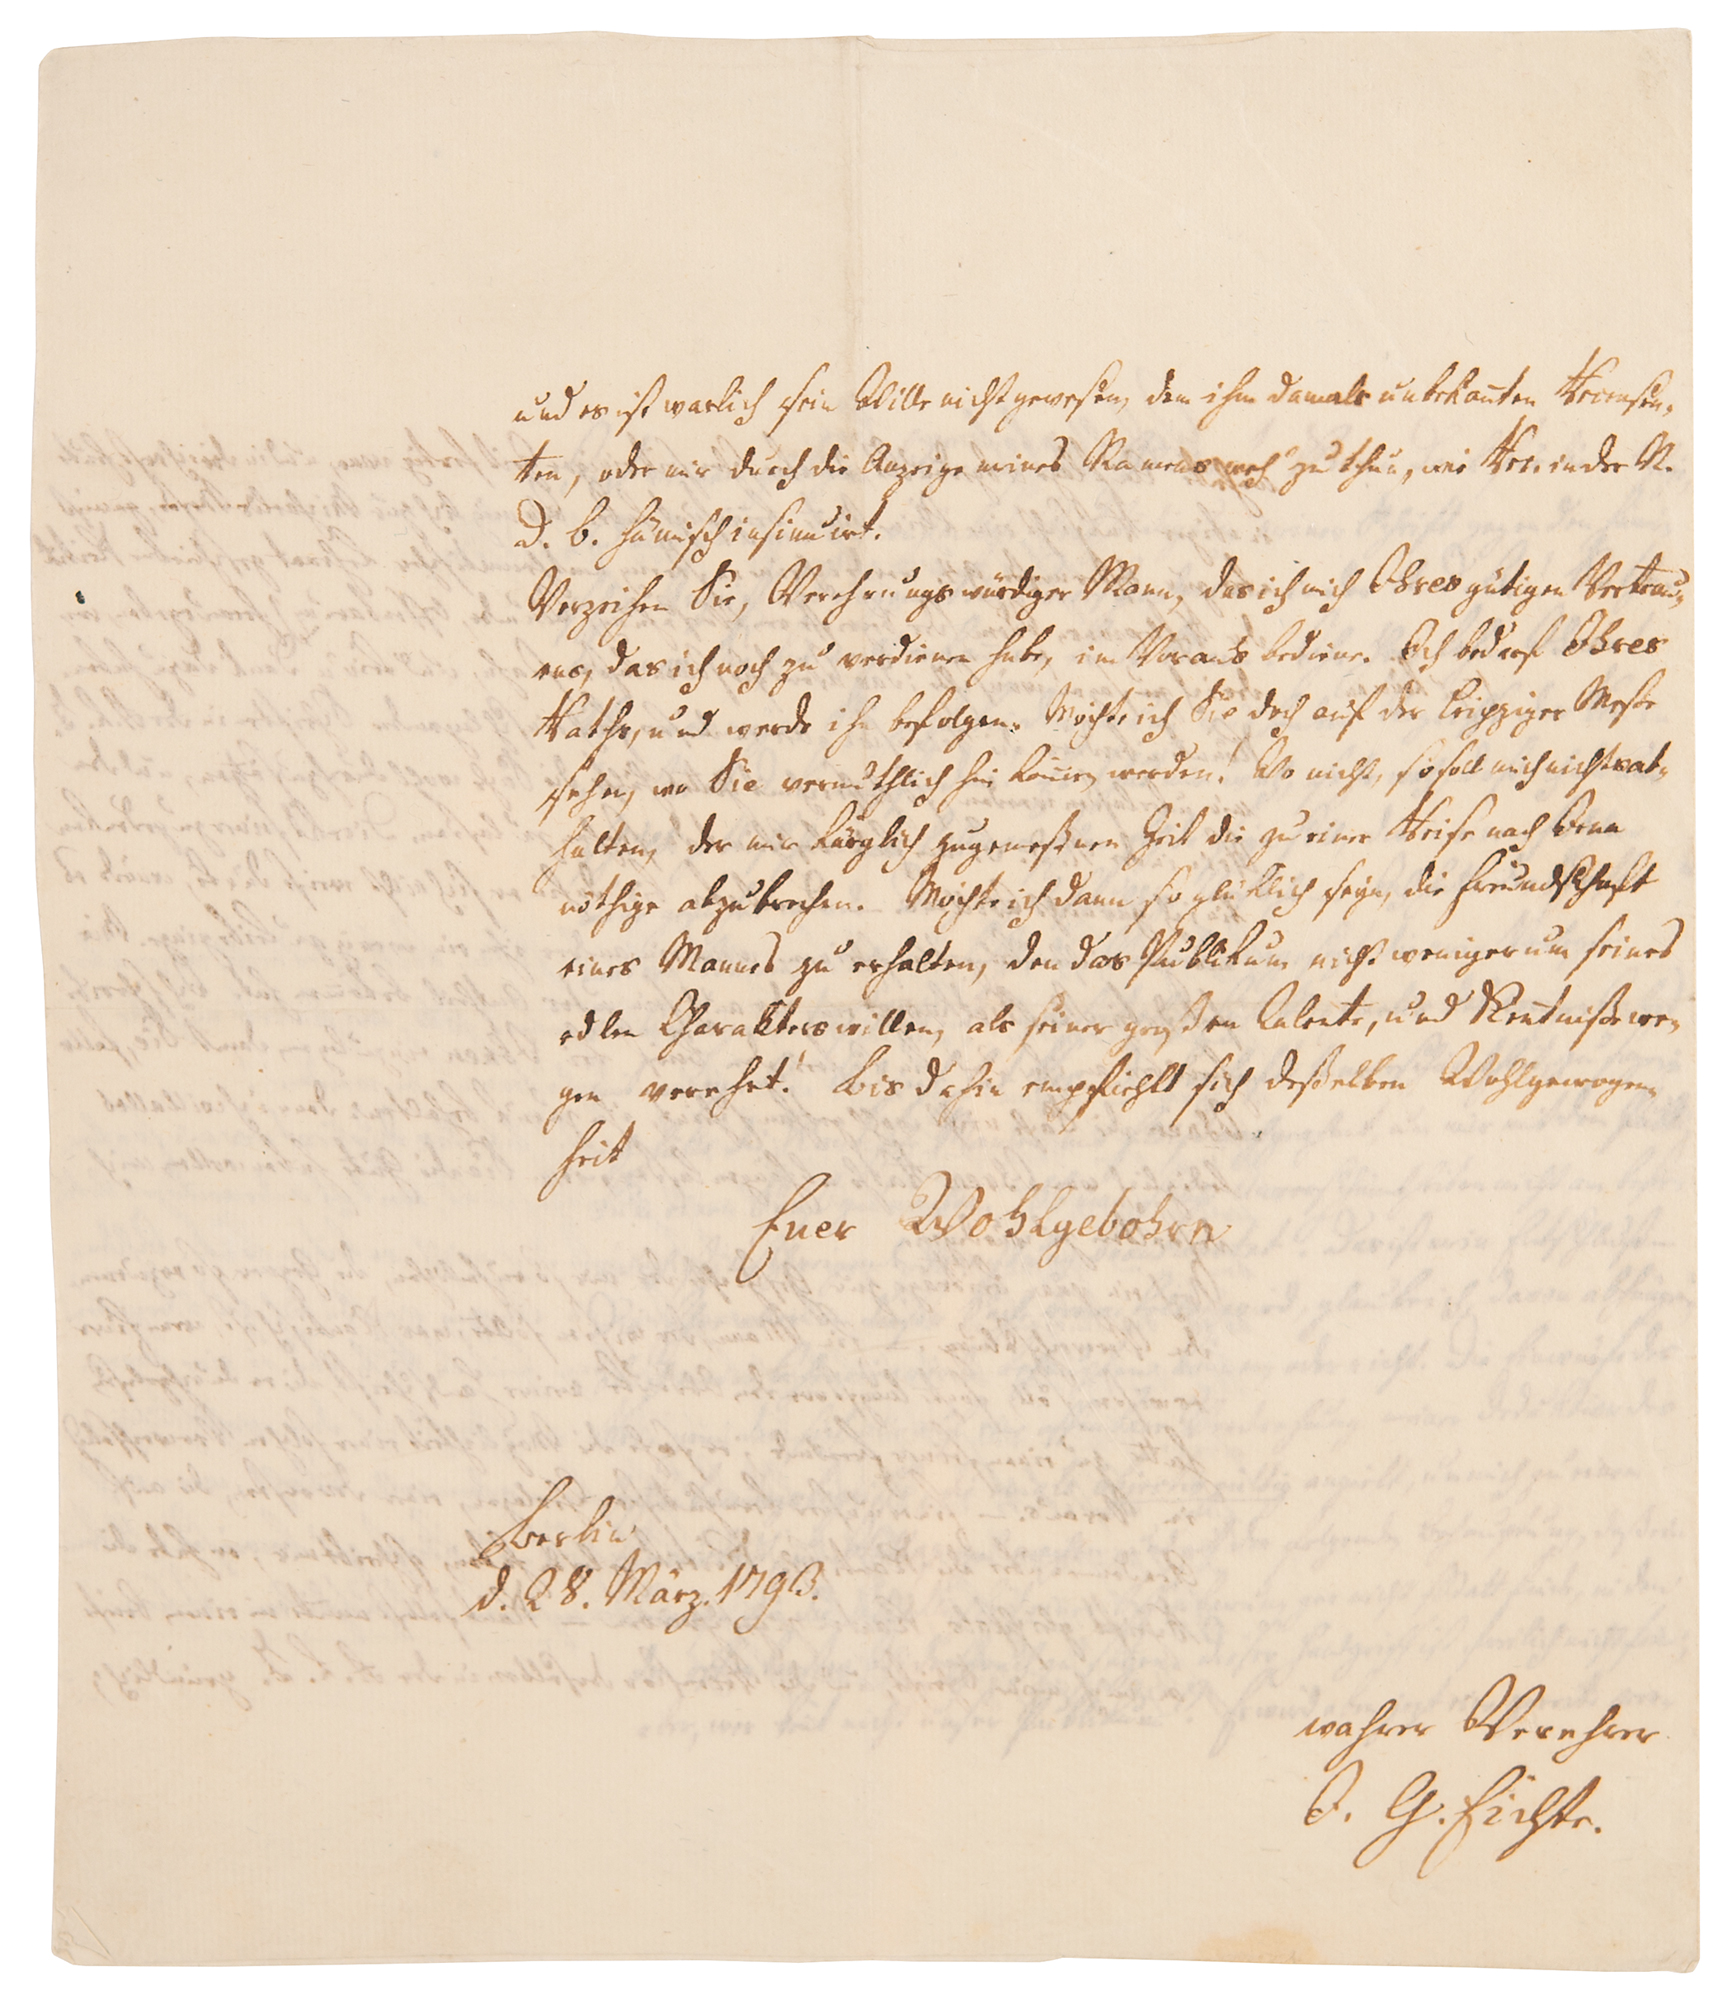 und es ist warlich sein Wille nicht gewesen, dem ihm damals unbekañten Recensen-
ten, oder mir durch die Anzeige meines Namens weh' zu thun, wie Rec. in der N.
D. B. hämisch insinuirt.
Verzeihen Sie, Verehrungswürdiger Mann, das ich mich Ihres gütigen Vertrau-
ens, das ich noch zu verdienen habe, im Voraus bediene. Ich bedarf Ihres
Raths, und werde ihn befolgen. Möchte ich Sie doch auf der Leipziger Meße
sehen, wo Sie vermuthlich hin kom̃en werden! Wo nicht, so soll mich nichts ab-
halten, der mir kärglich zugemeßnen Zeit die zu einer Reise nach Jena
nöthige abzubrechen. Möchte ich dann so glüklich seyn, die Freundschaft
eines Mannes zu erhalten, den das Publikum nicht weniger um seines
edlen Charakters willen, als seiner großen Talente, und Kentniße we-
gen verehrt! Bis dahin empfiehlt sich deßelben Wohlgewogen-
heit
Euer Wohlgebohrn
Berlin
d. 28. März. 1793.
wahrer Verehrer
J. G. Fichte.